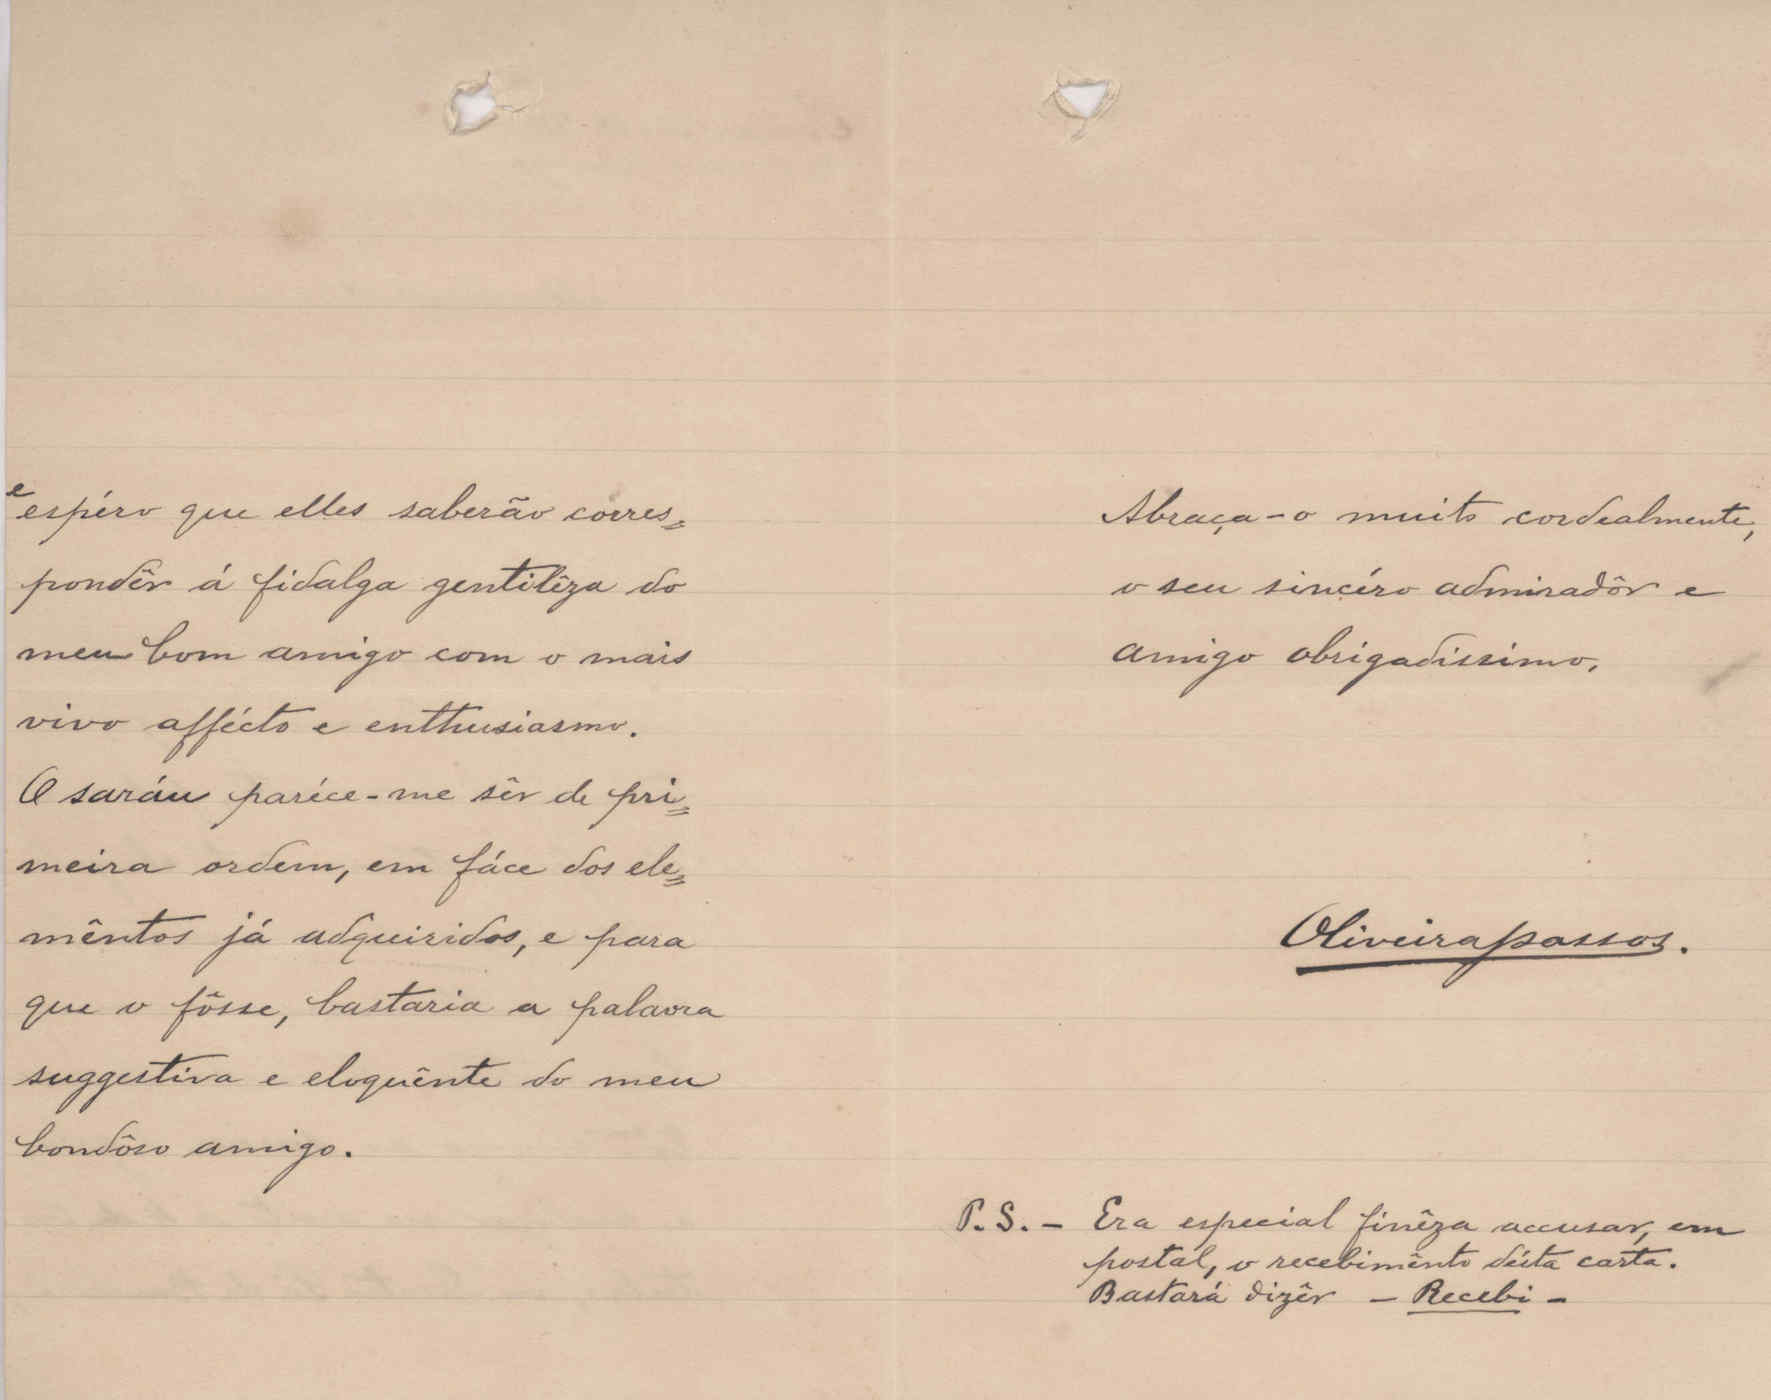 e espéro que elles saberão corres=
pondêr á fidalga gentilêza do
meu bom amigo com o mais
vivo affécto e enthusiasmo.
O saráu paréce-me sêr de pri=
meira ordem, em fáce dos ele=
mêntos já adquiridos, e para
que o fôsse, bastaria a palavra
suggestiva e eloquênte do meu
bondôso amigo.
Abraça-o muito cordealmente,
o seu sincéro admiradôr e
amigo obrigadissimo,
Oliveirapassos.
P.S. - Era especial finêza accusar, em
postal, o recebimênto désta carta.
Bastará dizêr - Recebi -